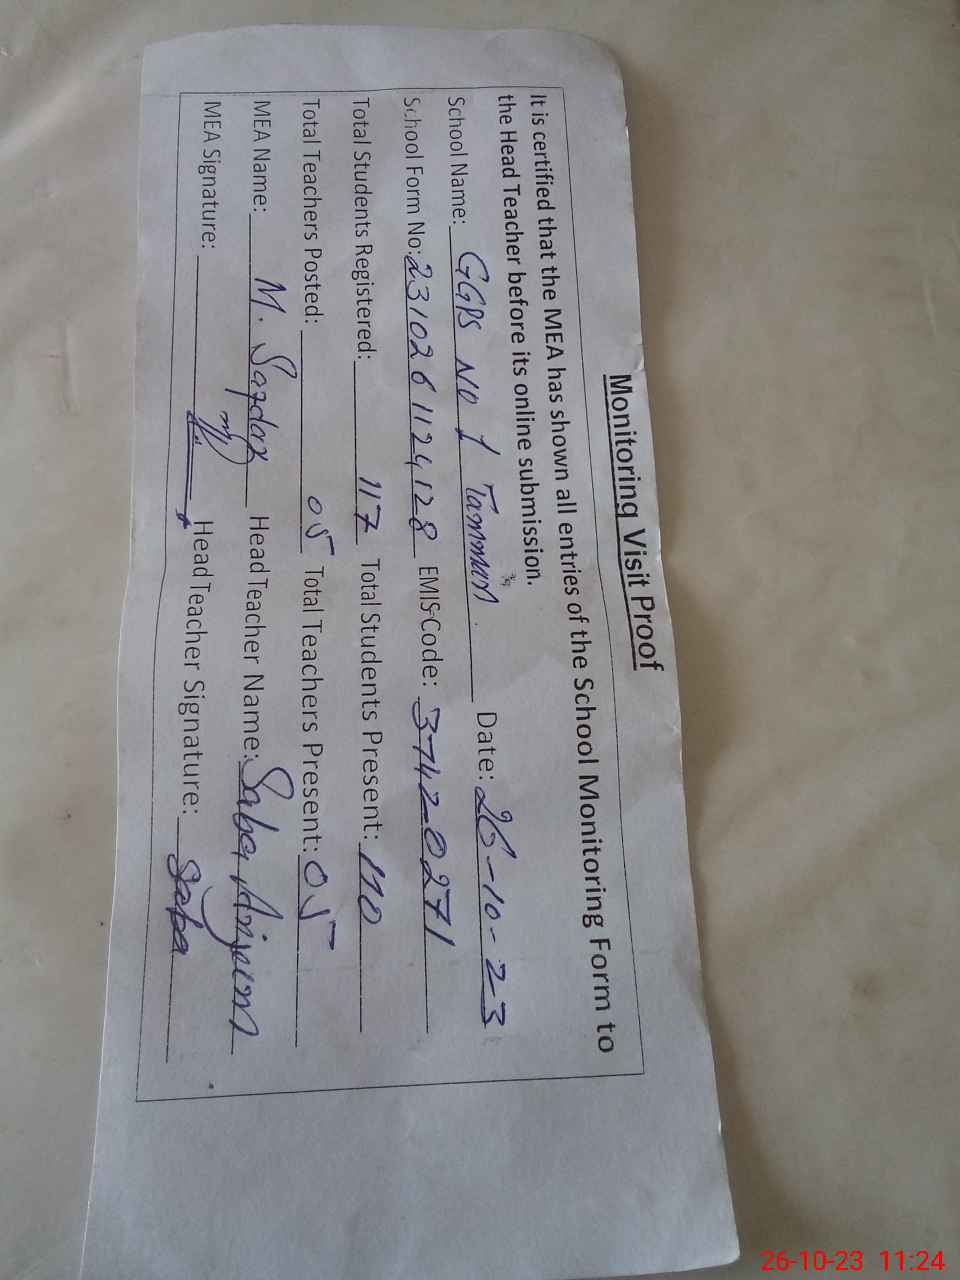 Monitoring Visit Proof
It is certified that the MEA has shown all entries of the School Monitoring Form to
the Head Teacher before its online submission.
School Name: GGPS NO 1 Tamman. Date: 26-10-23
School Form No: 2310261124128 EMIS Code: 37420271
Total Students Registered: 117 Total Students Present: 110
Total Teachers Posted: 05 Total Teachers Present: 05
MEA Name: M. Safdar Head Teacher Name: Saba Anjum
MEA Signature: Head Teacher Signature: Saba
26-10-23 11:24